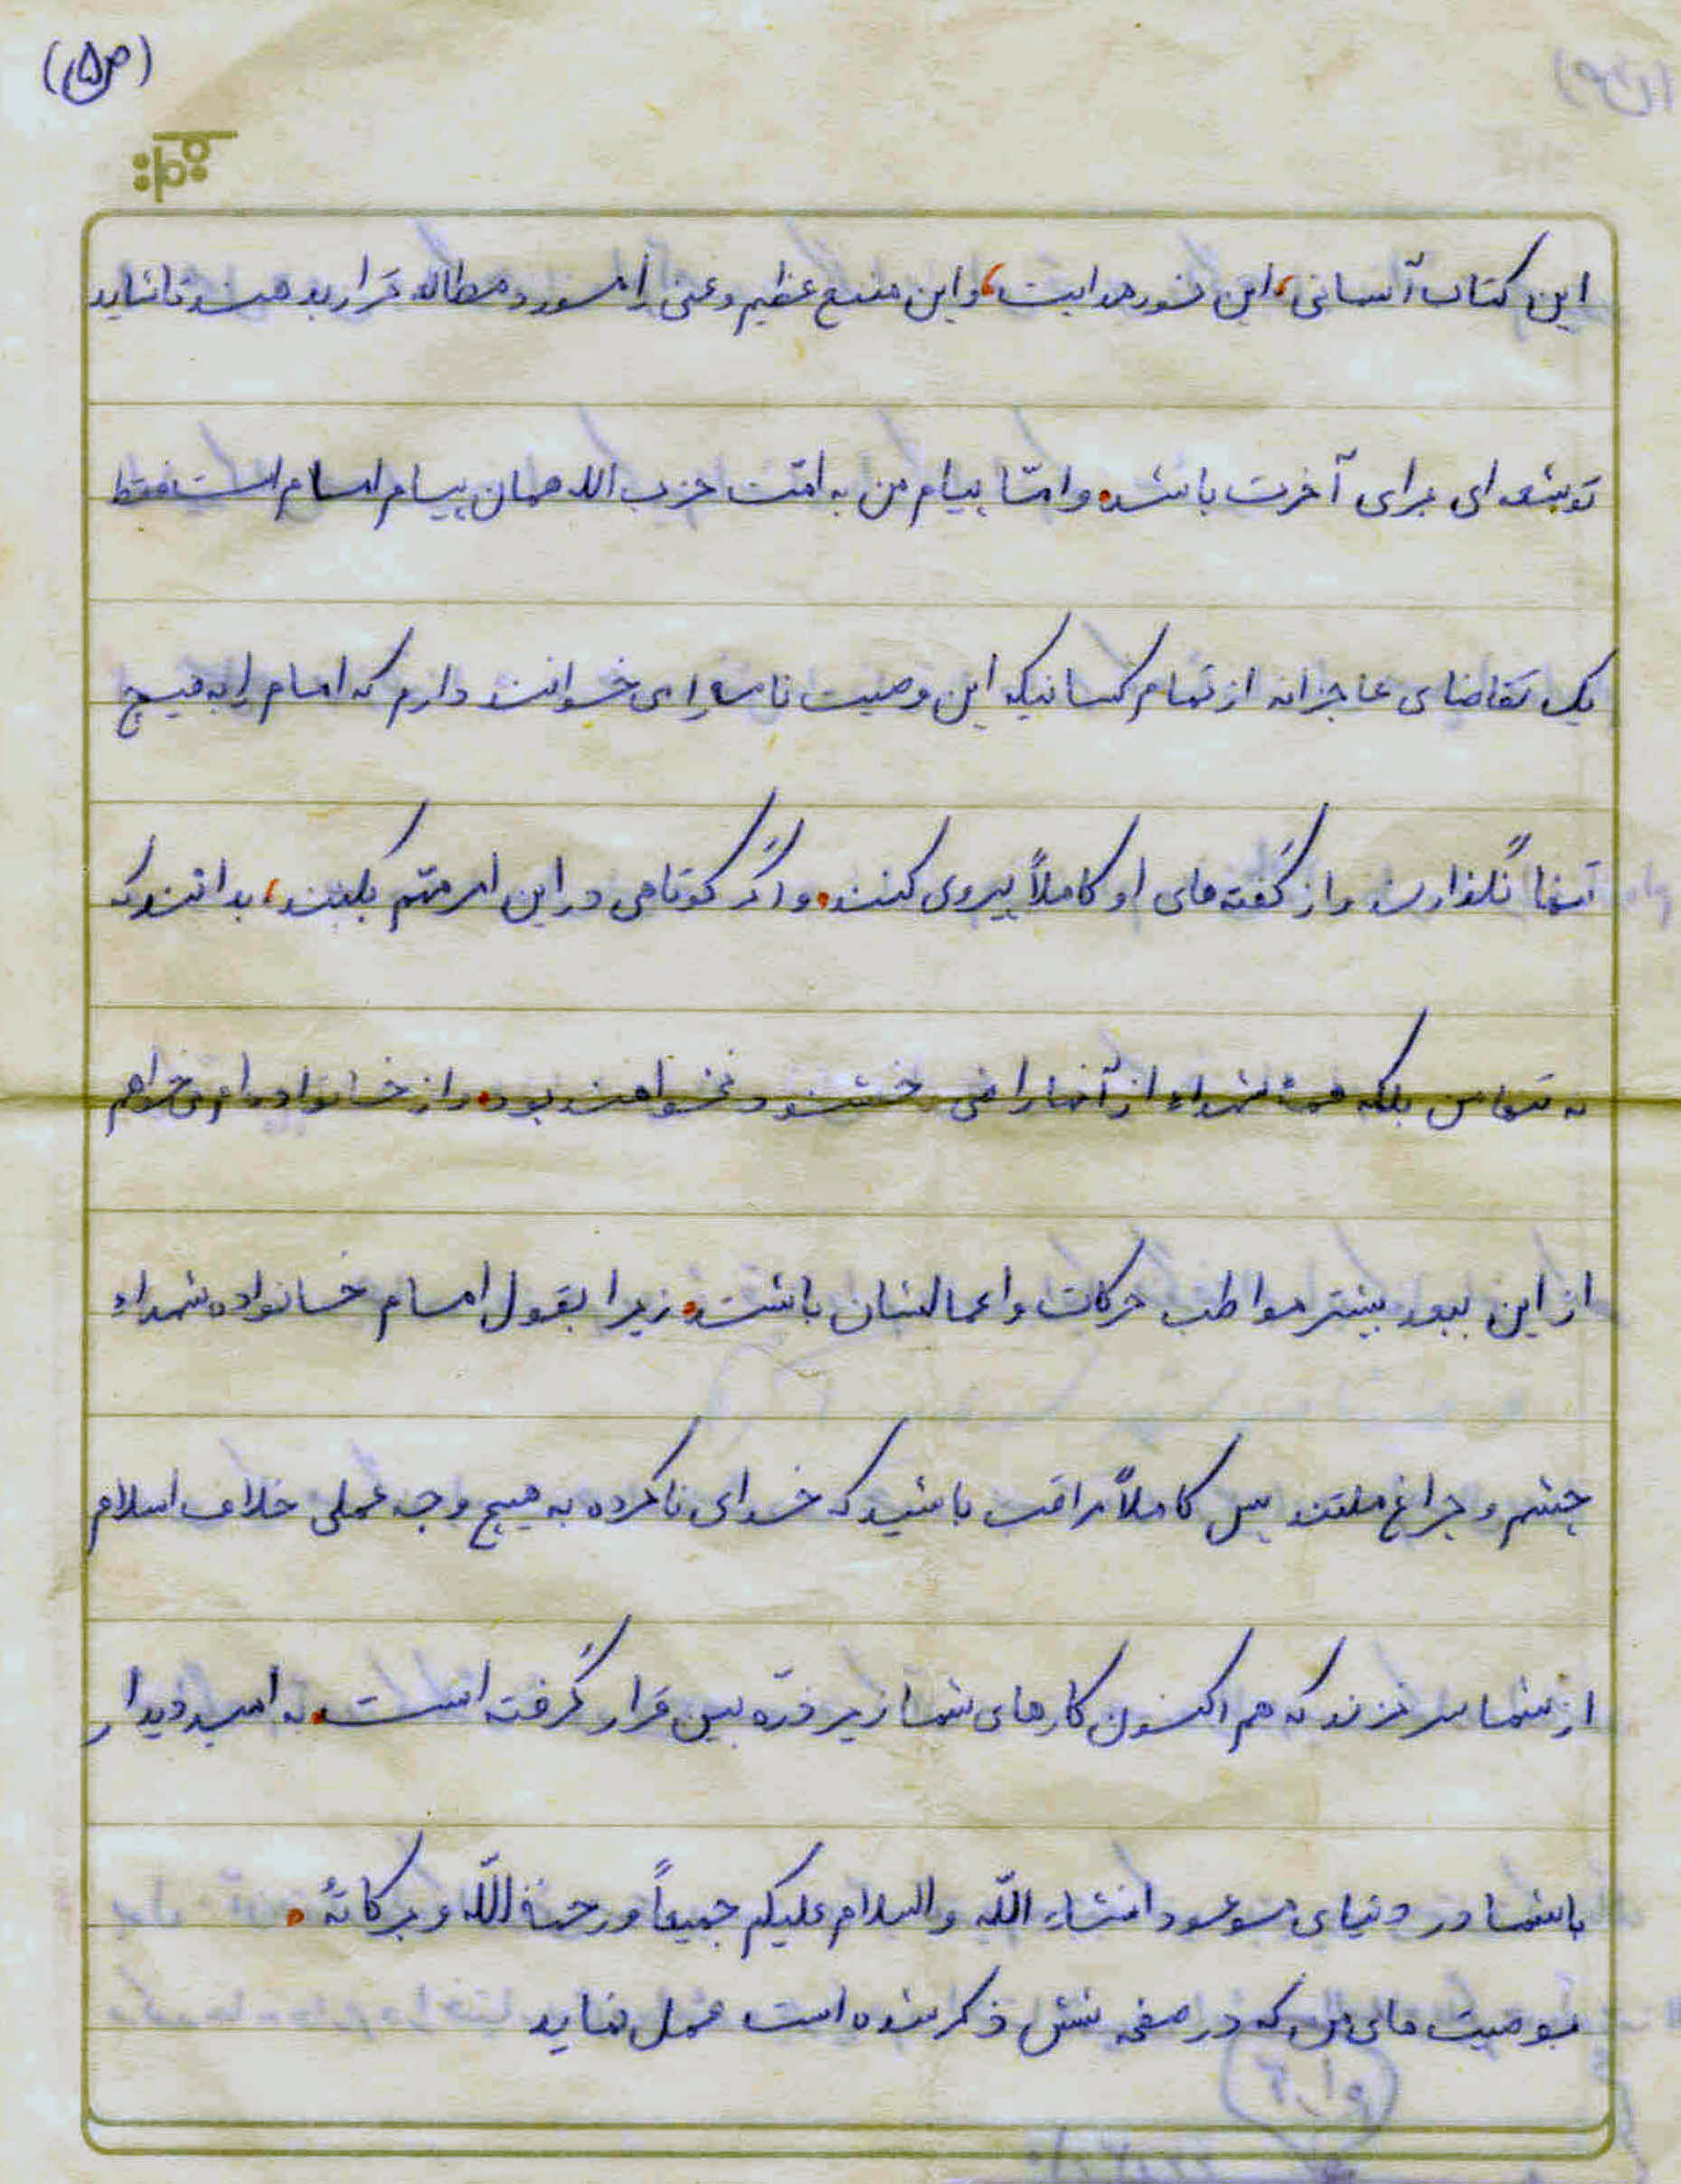 (ص۵)
این کتاب آسمانی، این نور هدایت، و این منبع عظیم و غنی را مورد مطالعه قرار بدهند تا شاید
توشه‌ای برای آخرت باشد. و امّا پیام من به امّت حزب الله همان پیام امام است فقط
یک تقاضای عاجزانه از تمام کسانیکه این وصیت نامه را می خوانند دارم که امام را به هیچ
تنها نگذارند و از گفته های او کاملاً پیروی کنند. و اگر کوتاهی در این امر مهّم بکنند، بدانند که
نه تنها من بلکه همهٔ شهداء از آنها راضی و خشنود نخواهند بود. و از خانواده ام می خواهم
از این ببعد بیشتر مواظب حرکات و اعمالشان باشند. زیرا بقول امام خانواده شهداء
چشم و چراغ ملتند پس کاملاً مراقب باشید که خدای ناکرده به هیچ وجه عملی خلاف اسلام
از شما سر نزند که هم اکنون کارهای شما زیر ذرّه بین قرار گرفته است. به امید دیدار
با شما در دنیای موعود انشاء اللّه والسلام علیکم جمیعاً و رحمة اللّه و برکاتهُ.
بوصیت های من که در صفحه شش ذکر شده است عمل نماید